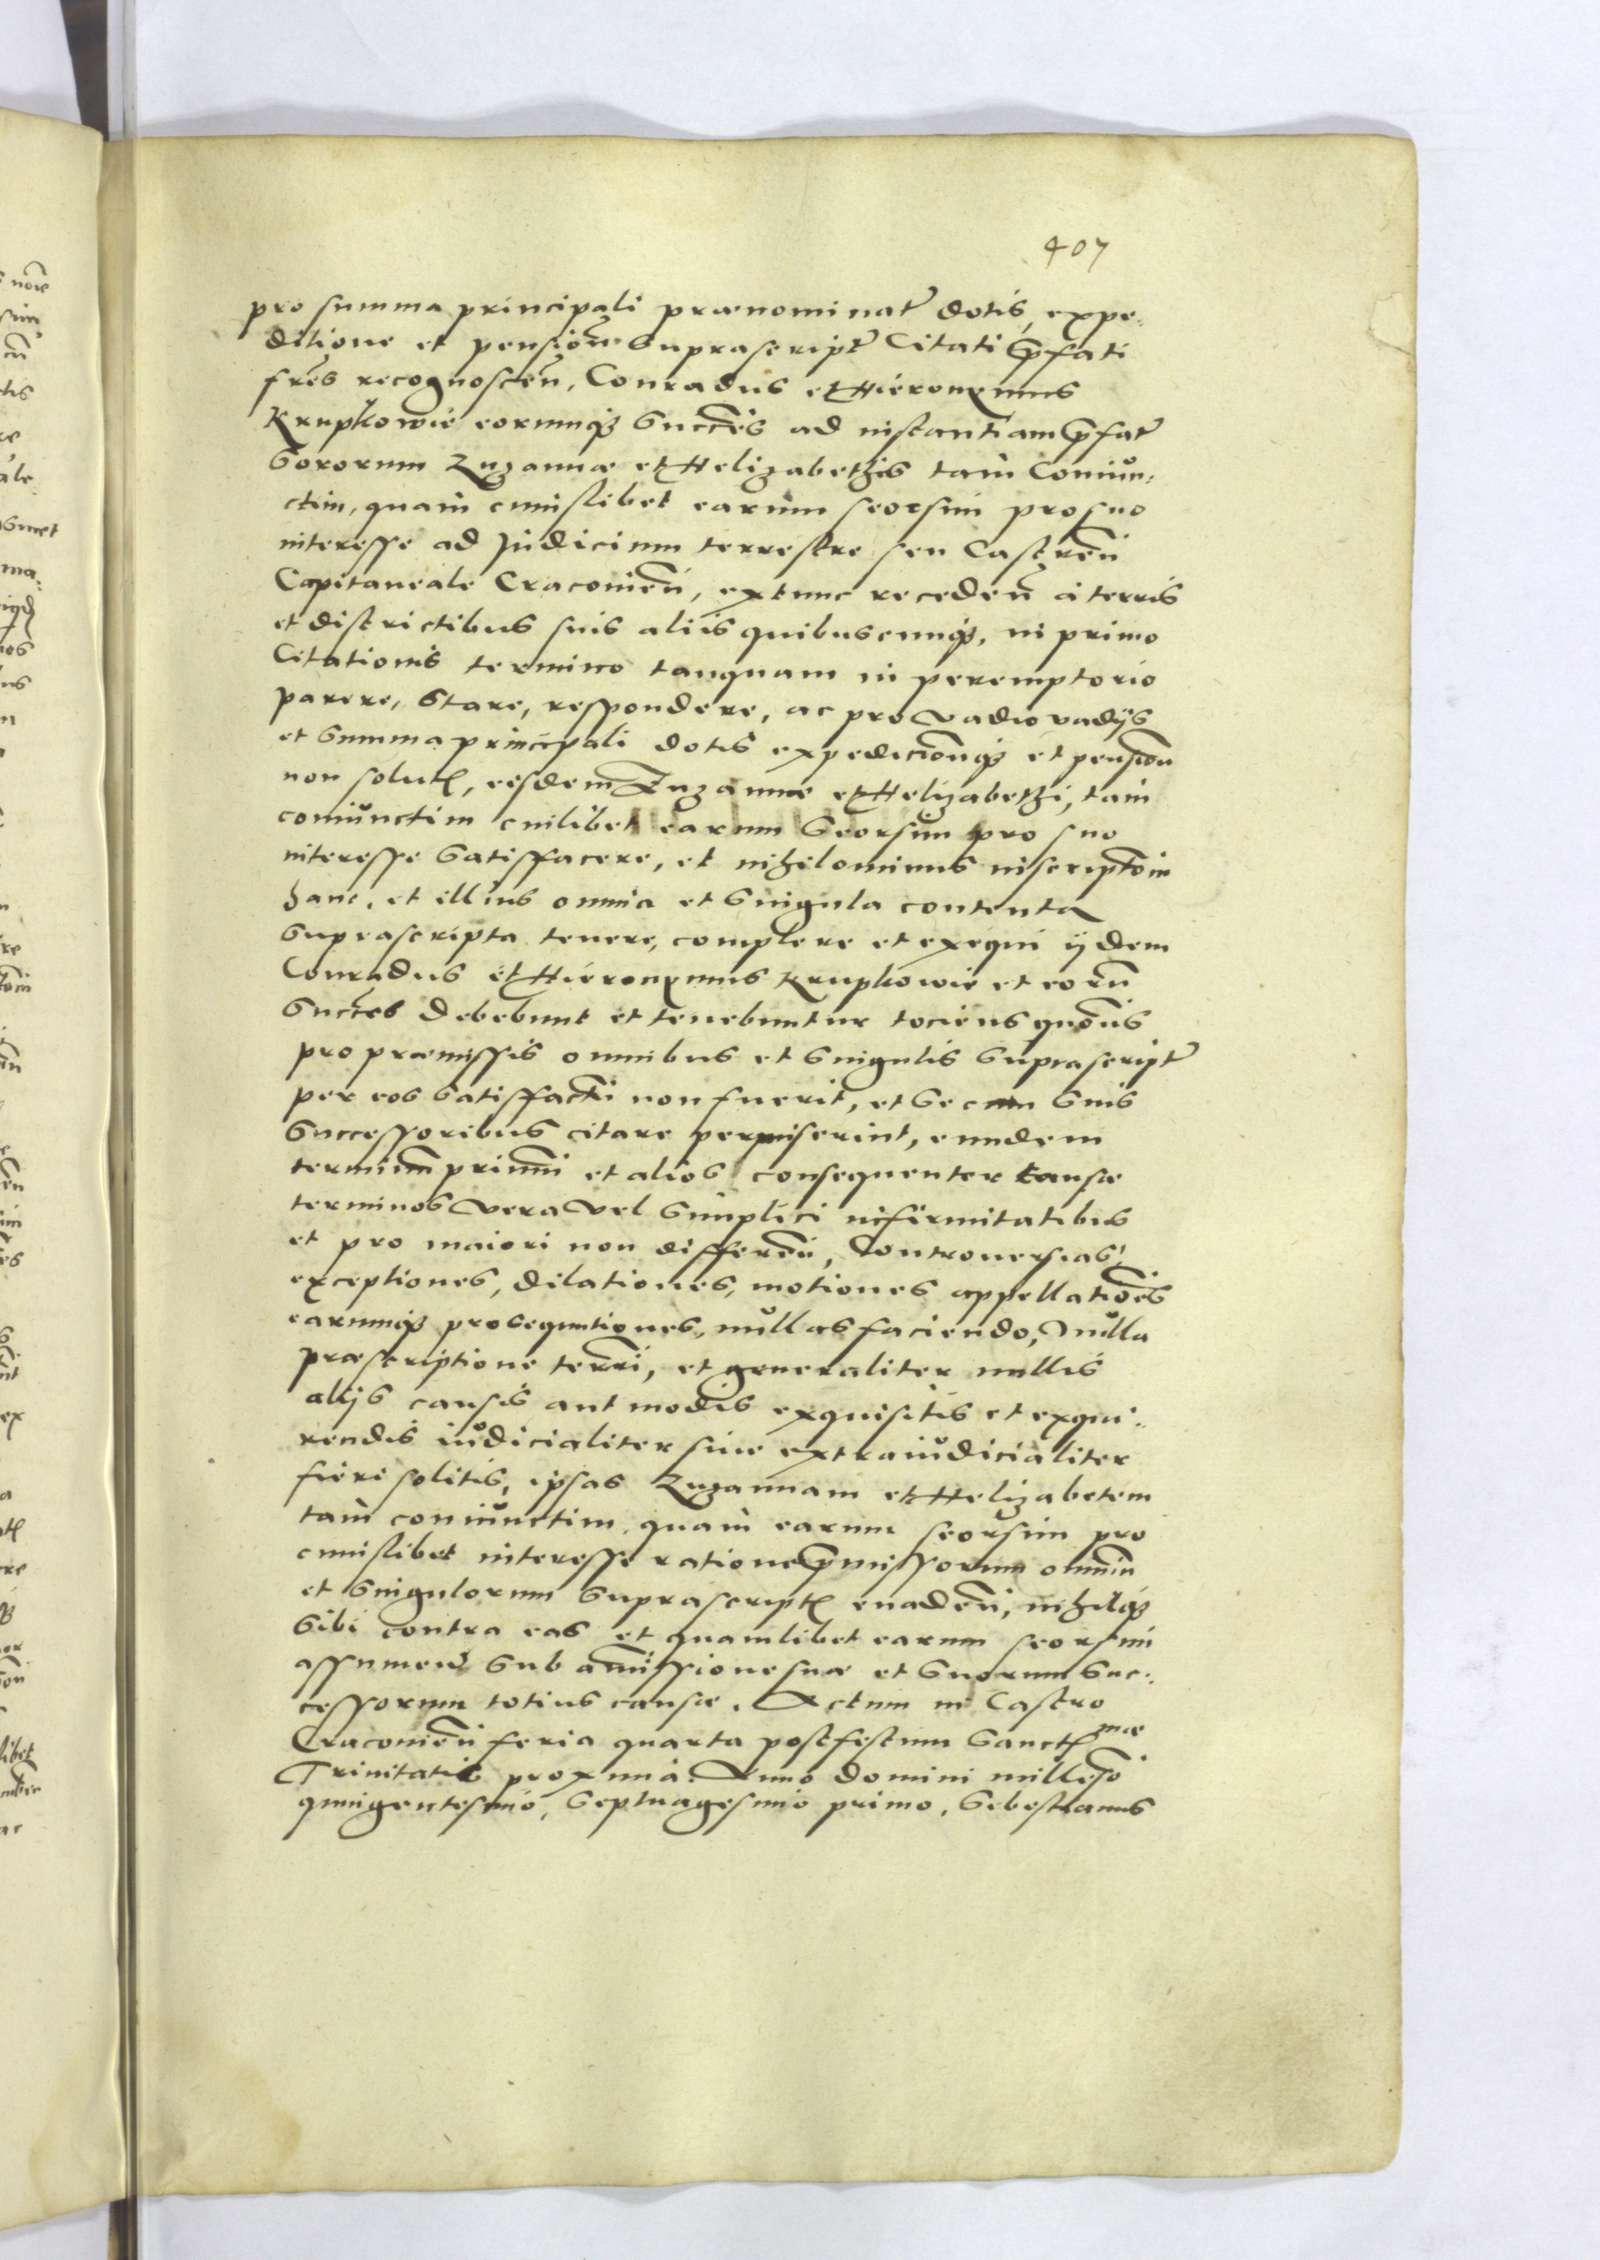 407
pro summa principali prænominat dotis, expe-
ditione et pensioñ suprascript Citati pfati
frēs recognoscen, Conradus et Hieronymus
Krupkowie eorumq succēs ad instantiam pfat
Sororum Zuzannæ et Helizabethis tam Coniun-
ctim, quam cuiuslibet earum seorsim pro suo
interesse ad Judicium terrestre seu Castreñ
Capitaneale Cracouieñ, extunc recedeñ a terris
et districtibus suis alijs quibuscunq, in primo
Citationis termino tanquam in peremptorio
parere, stare, respondere, ac pro vadio vadijs
et summa principali dotis expedicionq et pensioñ
non solut, eisdem Zuzannæ et Helizabethi, tam
coniunctim cuilibet earum seorsim pro suo
interesse satisffacere, et nihilominus inscriptōm
hanc, et illius omnia et singula contenta
supprascripta tenere, complere et exequi ijdem
Conradus et Hieronymus Krupkowie et eorū
succēs debebunt et tenebuntur tociens quociēs
pro præmissis omnibus et singulis supprascript
per eos satisffactū non fuerit, et se cum suis
successoribus citare permiserint, eundem
terminum primū et alios consequenter causæ
terminos vera vel simplici infirmitatibus
et pro maiori non differeñ, Controuersias,
exceptiones, dilationes, motiones appellatiōes
earumq prosequutiones, nullas faciendo, Nulla
præscriptione terrī, et generaliter nullis
alijs causis aut modis exquisitis et exqui-
rendis iudicialiter siue extraiudicialiter
fieri solitis, ipsas Zuzannam et Helizabetem
tam coniunctim, quam earum seorsim pro
cuiuslibet interesse ratione pmissorum omniū
et singulorum supprascript euadeñ, nihilq
sibi contra eas et quamlibet earum seorsim
assumeñ sub amissione suæ et suorum suc-
cessorum totius causæ. Actum in Castro
Cracouieñ feria quarta post festum Sanctmæ
Trinitatis proxima. Anno domini millesō
quingentesimo, Septuagesimo primo, Sebestianus